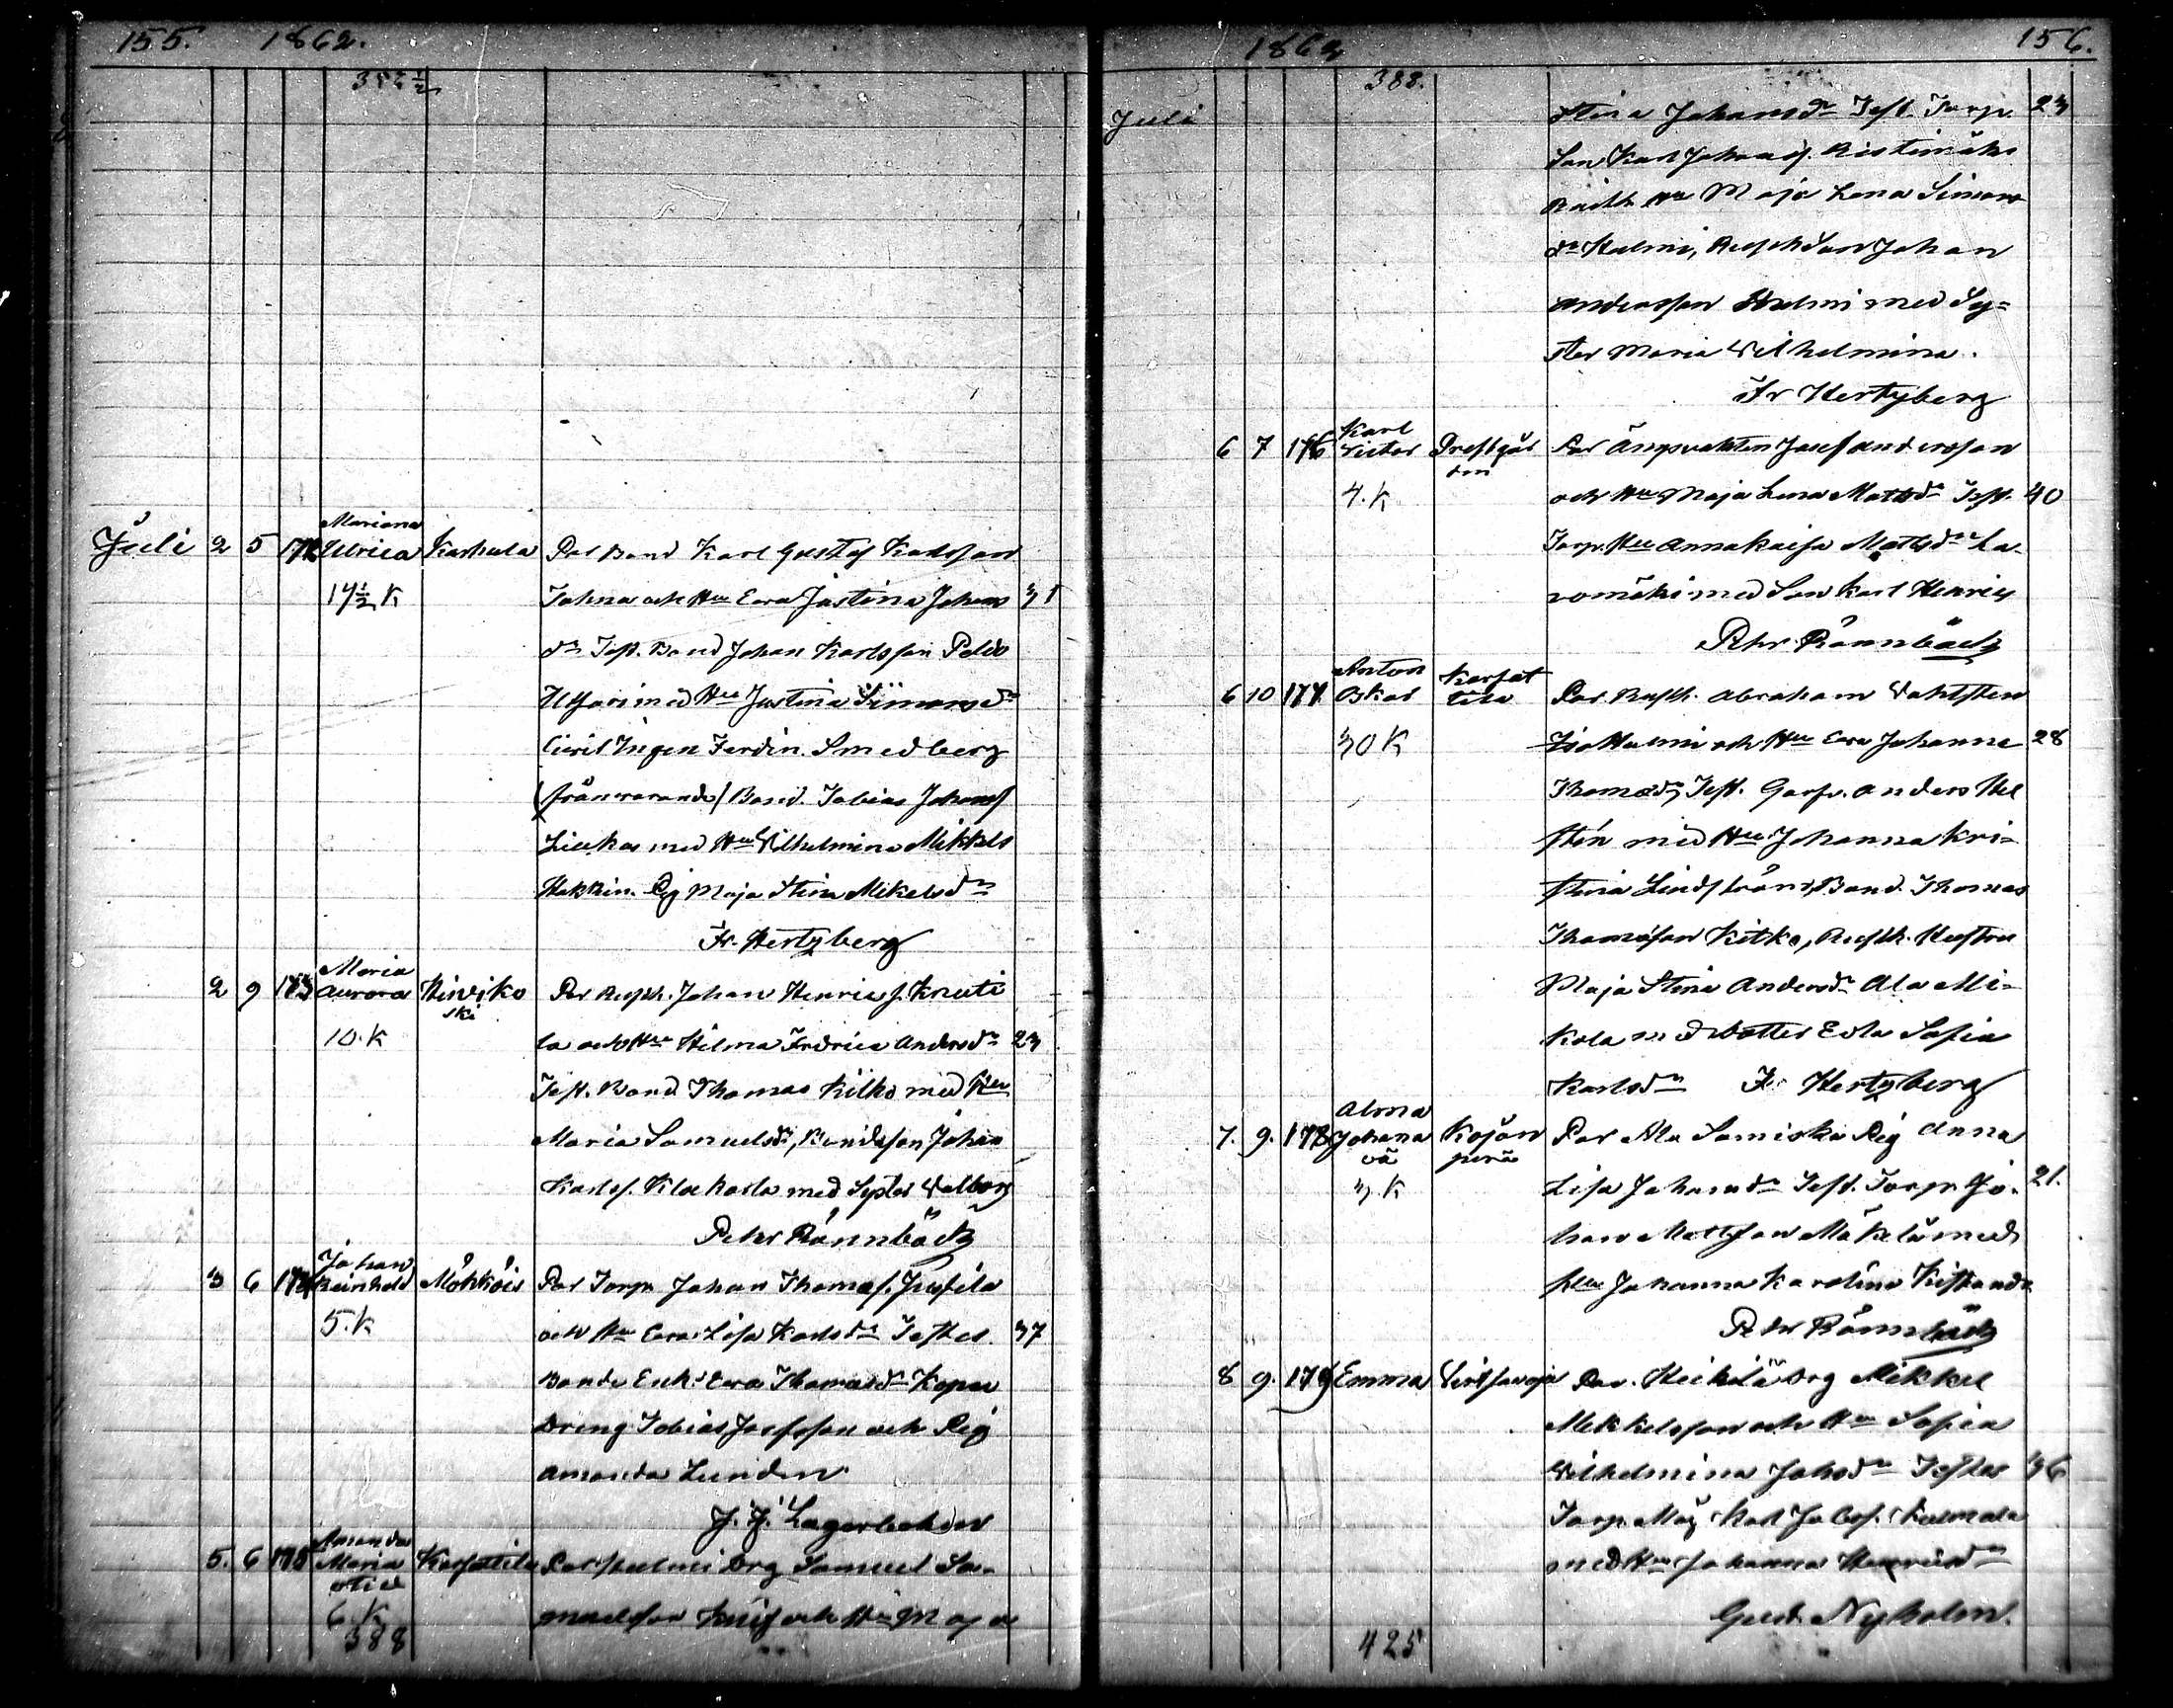 155. 1862.
382½
Juli 2 5 172 Mariana Ulrica Karhula Par Bond Karl Gustaf Karlsson
14½ K Tahna och Hu Eva Justina Johans 31
dr Test. Bond Johan Karlsson Peldo
Uthari med Hu Justina Simonsdr
Civil Ingen Ferdin. Smedberg
(frånvarande) Bond. Tobias Johans
Liukas med Hu Wilhelmina Mikkels
Hakkin. Pig Maja Stina Mikelsdr
Fr. Hertzberg
2 9 173 Maria Aurora Hirvikoski Par Inhys. Johan Henrics. Knuuti
10. K la och Hu Hilma Fredrica Andersdr 23
Test. Bond Thomas Kitko med Hu
Maria Samuelsdr, Bondeson Johan
Karls. Klockarla med Syster Walborg
Petr Rönnbäck
3 6 174 Johan Reinhold Mönköis Par Torp Johan Thomas. Jussila
5. K och Hu Eva Lisa Karlsdr Testes. 37
Bonde Enk. Eva Thomasdr Kepu
Dreng Tobias Josefsson och Pig
Amanda Lunden
J. J. Lagerbohm
5. 6 175 Amanda Maria Karsattila Par Hulmi Drg Samuel Sa-
6 K muelson och Hu Maja
388
1862 156.
388.
Juli Stina Johansdr Test. Torp. 23
Son Karl Johans. Ristimäki
Hu Maja Lena Simons
dr Hulmi, Son Johan
Andersson Hulmi med Sy=
ster Maria Wilhelmina.
Fr Hertzberg
6 7 176 Karl Victor Prestgården Par Ängsvakten Josef Andersson
4. K och Hu Maja Lena Mattsdr Test. 40
Torp. Hu Anna Kaisa Mattsdr La-
romäki med Son Karl Henric
Petr Rönnbäck
6 10 177 Anton Oskar Karsattila Par. Abraham Wahlsten
30 K och Hu Eva Johanna 28
Thomasdr, Test. Garfv. Anders Hel
stén med Hu Johanna Kri-
stina Lindström, Bond. Thomas
Thomasson Kitko, Hustru
Maja Stina Andersdr Ala Mi-
kola med dotter Edla Sofia
Karlsdr Fr Hertzberg
7. 9. 178 Alma Johana oä Kojonperä Par Ala Samiska Pig Anna
3. K Lisa Johansdr Test. Torp. Jo- 21.
han Mattsson Mäkelä med
Hu Johanna Karolina
Petr Rönnbäck
8 9. 179 Emma Par. Heikilä Drg Mikkel
Mikkelsson och Hu Sofia
Wilhelmina Johsdr Testes 36
Torp. Karl Jacobs. Kulmala
med Hu Johanna Henricsdr
Gust. Nyholm.
425